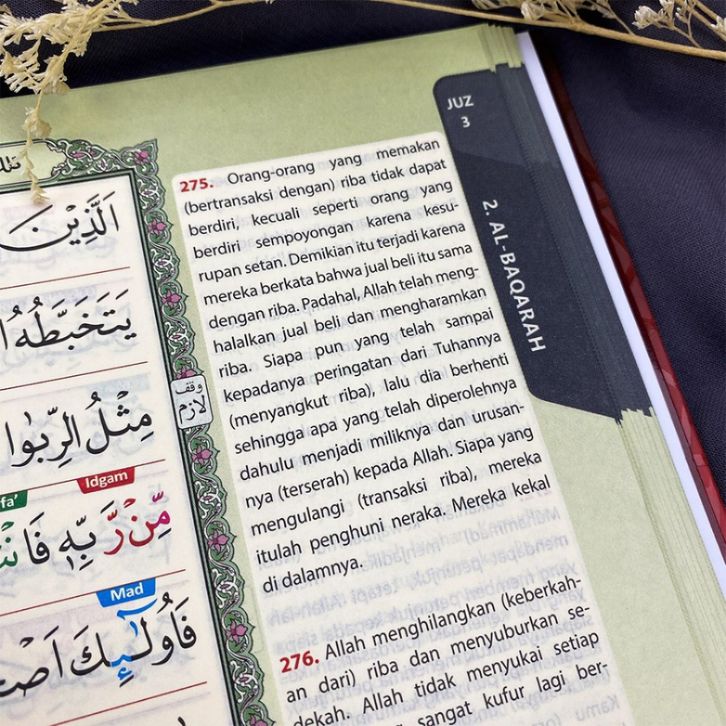 JUZ
3
2. AL-BAQARAH
275. Orang-orang yang memakan
(bertransaksi dengan) riba tidak dapat
berdiri, kecuali seperti orang yang
berdiri sempoyongan karena kesu-
rupan setan. Demikian itu terjadi karena
mereka berkata bahwa jual beli itu sama
dengan riba. Padahal, Allah telah meng-
halalkan jual beli dan mengharamkan
riba. Siapa pun yang telah sampai
kepadanya peringatan dari Tuhannya
(menyangkut riba), lalu dia berhenti
sehingga apa yang telah diperolehnya
dahulu menjadi miliknya dan urusan-
nya (terserah) kepada Allah. Siapa yang
mengulangi (transaksi riba), mereka
itulah penghuni neraka. Mereka kekal
di dalamnya.
276. Allah menghilangkan (keberkah-
an dari) riba dan menyuburkan se-
dekah. Allah tidak menyukai setiap
sangat kufur lagi ber-
اَلَّذِيْنَ
يَتَخَبَّطُهُ
مِثْلُ الرِّبٰوا
وقف لازم
Idgam
fa'
مِّنْ رَّبِّهٖ فَانْتَ
Mad
فَاُولٰۤىِٕكَ اَصْ